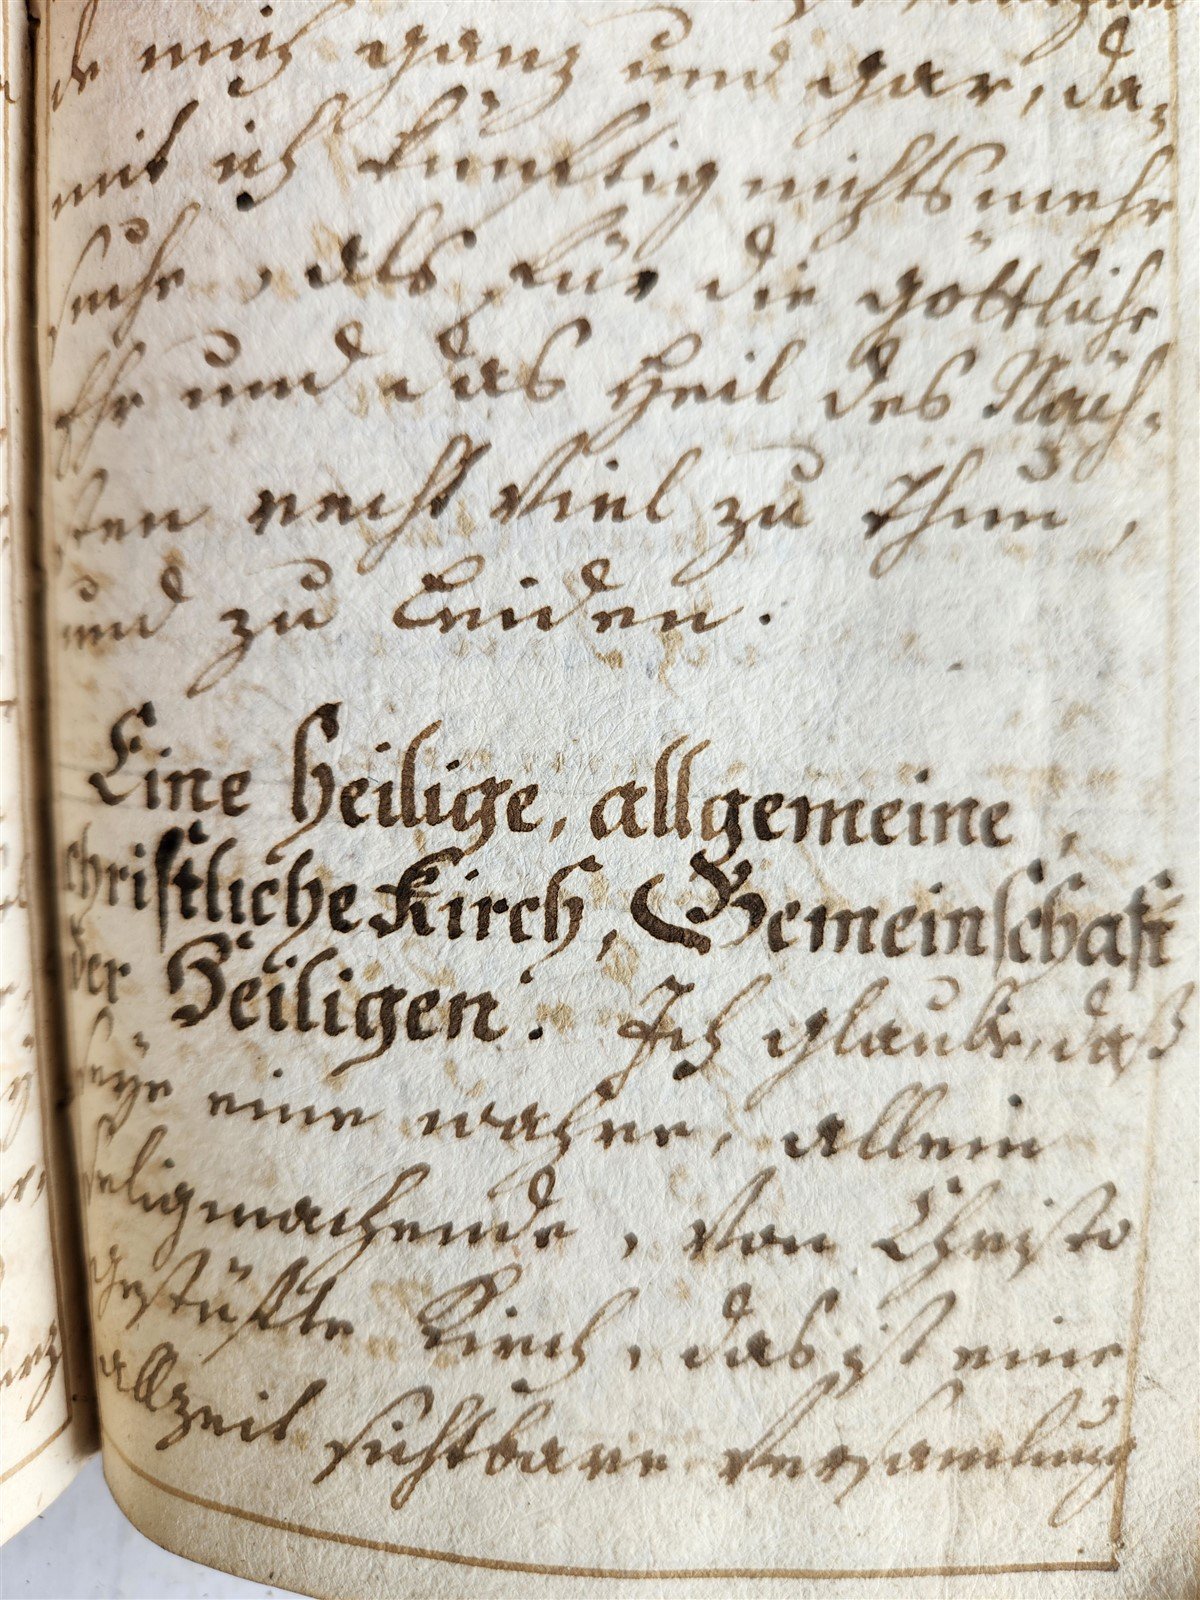 de mich ganz und gar, da-
mit ich künftig nichts mehr
suche, als für die göttliche
Ehr und das Heil des Näch-
sten recht viel zu thun,
und zu Leiden.
Eine heilige, allgemeine,
christliche Kirch, Gemeinschaft
der Heiligen. Ich glaube, daß
seye eine wahre, allein
seligmachende, von Christo
gestüfte Kirch, das ist eine
allzeit sichtbare Versamlung